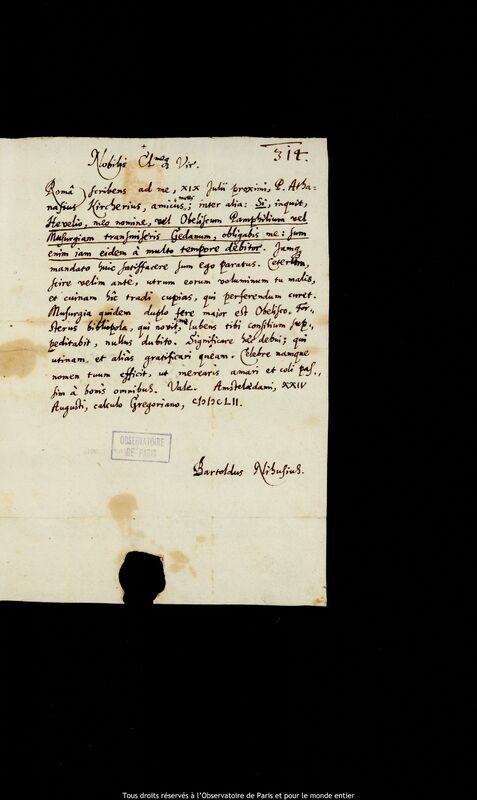 314.
Nobilis Cl.me q Vir.
Româ scribens ad me, XIX Julii proximi, P. Atha-
nasius Kircherius, amicus meus; inter alia: Si, inquit,
Hevelio, meo nomine, vel Obeliscum Pamphilium vel
Musurgiam transmiseris Gedanum, obligabis me: sum
enim iam eidem à multo tempore debitor. Jamq
mandato huic satisfacere sum ego paratus. Ceterùm,
scire velim ante, utrum eorum voluminum tu malis,
et cuinam hîc tradi cupias, qui perferendum curet.
Musurgia quidem duplo fere maior est Obelisco. For-
sterus bibliopola, qui novit me, lubens tibi consilium sup-
peditabit, nullus dubito. Significare hec debui; qui
utinam et aliàs gratificari queam. Celebre namque
nomen tuum efficit, ut merearis amari et coli pas-
sim à bonis omnibus. Vale. Amstelædami, XXIV
Augusti, calculo Gregoriano, CIƆIƆCLII.
OBSERVATOIRE
DE PARIS
Bartoldus Nihusius.
Tous droits réservés à l'Observatoire de Paris et pour le monde entier